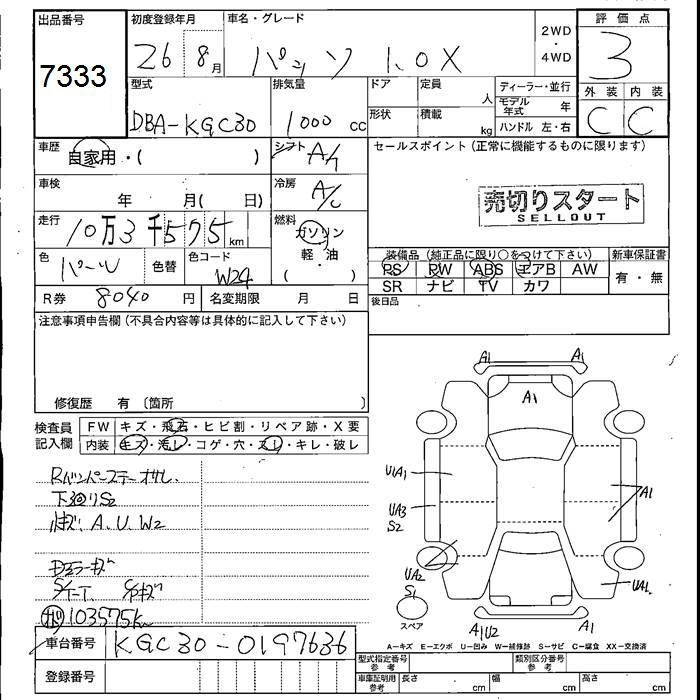 出品番号
7333
初度登録年月
26 8月
車名・グレード
パッソ 1.0X
2WD
・
4WD
評価点
3
型式
DBA-KGC30
排気量
1000 cc
ドア
定員
人
形状
積載
kg
ディーラー・並行
モデル年式 年
ハンドル 左・右
外装 内装
C C
車歴
自家用・( )
シフト
A/T
セールスポイント (正常に機能するものに限ります)
車検
年 月( 日)
冷房
A/C
売切りスタート
SELLOUT
走行
10万3千575km
燃料
ガソリン
軽・油
・
( )
色
パール
色替
色コード
W24
装備品 (純正品に限り○をつけて下さい)
新車保証書
PS PW ABS エアB AW
SR ナビ TV カワ
有・無
R券 8040 円
名変期限 月 日
後日品
注意事項申告欄 (不具合内容等は具体的に記入して下さい)
修復歴 有 〔箇所 〕
検査員
記入欄
FW キズ・飛石・ヒビ割・リペア跡・X要
内装 キズ・汚レ・コゲ・穴・スレ・キレ・破レ
Rバンパーステー オサレ.
下廻りS2
A.U.W2
Dミラーキズ
103575km
A1 A1
A1
U1A1
UA3
S2
A1
UA2
S1
UA1
スペア
A1U2 A1
A-キズ E-エクボ U-凹み W-補修跡 S-サビ C-腐食 XX-交換済
車台番号
KGC30-0197636
登録番号
型式指定番号
参考
類別区分番号
参考
車庫証明用
参考
長さ cm 幅 cm 高さ cm